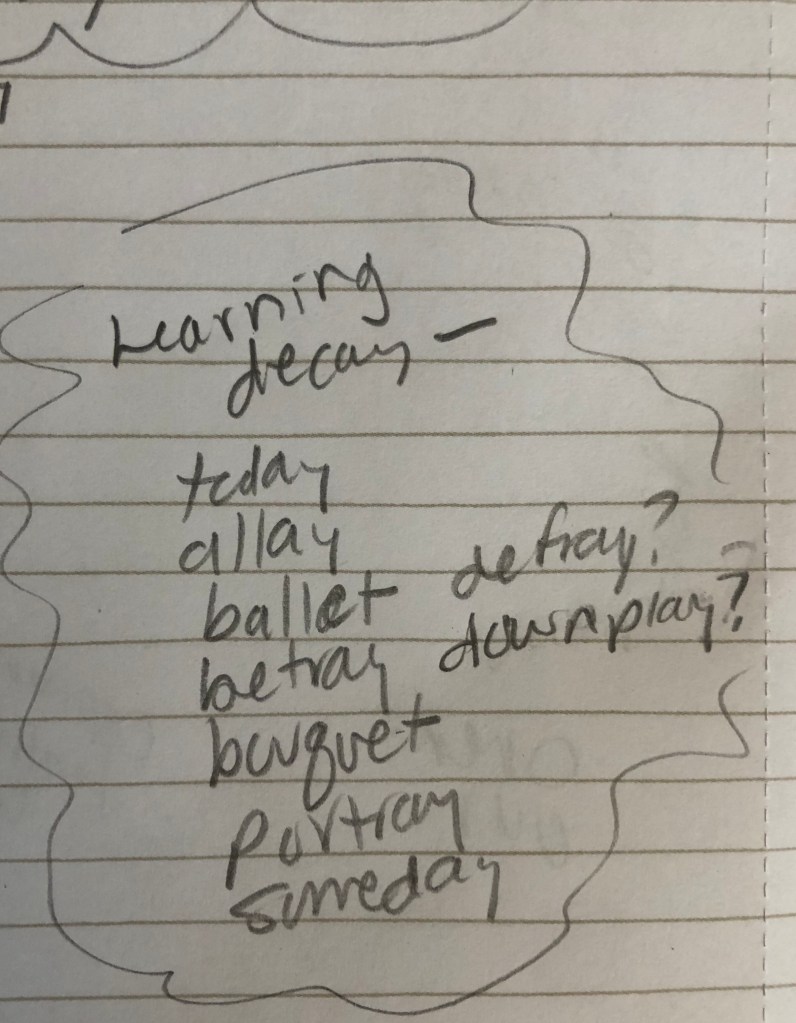 Learning
decay –
today
allay
ballet defray?
betray downplay?
bouquet
portray
someday